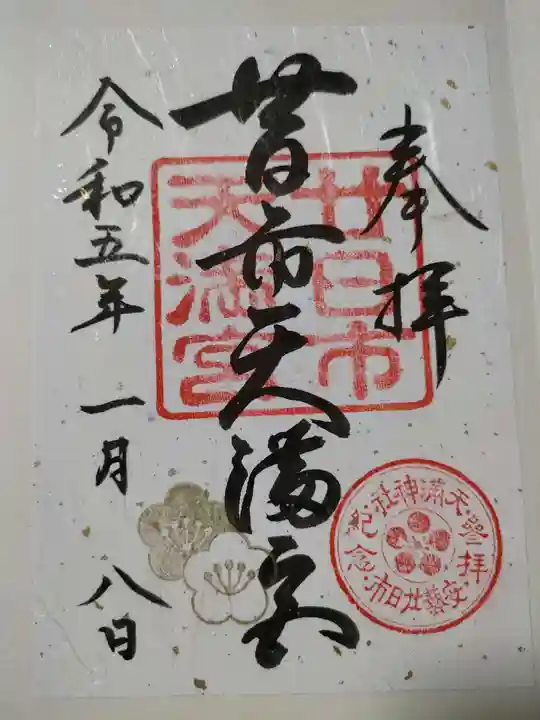 奉拝
廿日市天満宮
令和五年 一月 八日
廿日市
天満宮
天満神社・參拝
安藝廿日市・紀念